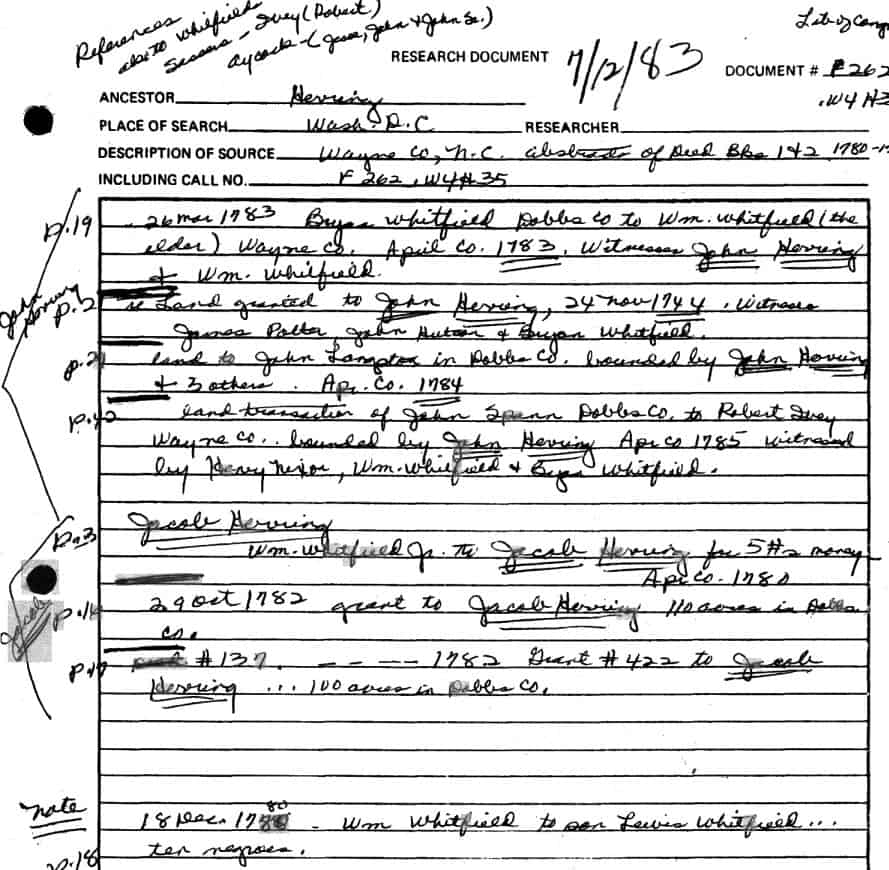 References
also to Whitfield
Sessoms - Ivey (Robert.)
Aycock - (Jesse, John & John Sr.)
RESEARCH DOCUMENT
7/12/83
DOCUMENT # F262
.W4 H3
ANCESTOR Herring
PLACE OF SEARCH Wash. D.C RESEARCHER
DESCRIPTION OF SOURCE Wayne Co, N.C. abstracts of Deed Bks 1+2 1780-
INCLUDING CALL NO. F 262 .W4H35
John Herring
p.19 26 Mar 1783 Bryan Whitfield Dobbs Co to Wm. Whitfield (the
elder) Wayne Co. April Co. 1783. Witnesses John Herring
& Wm. Whitfield.
p.2 land granted to John Herring, 24 Nov 1744. Witness
James Potter, John & Bryan Whitfield.
p.2 land to John in Dobbs Co. bounded by John Herring
& 3 others. Ap. Co. 1784
p.42 land transaction of John Spann Dobbs Co, to Robert Ivey
Wayne Co.. bounded by John Herring Apr Co 1785 witnessed
by Henry , Wm. Whitfield & Bryan Whitfield.
Jacob Herring
p.3 Wm. Whitfield Jr. to Jacob Herring for 5 money
Apr Co. 1780
Jacob
p.16 29 Oct 1782 grant to Jacob Herring 110 acres in Dobbs
Co.
p.17 #137. - - - - 1782 Grant #422 to Jacob
Herring ... 100 acres in Dobbs Co.
note
18 Dec. 1780 - Wm Whitfield to son Lewis Whitfield...
ten negroes.
p.18